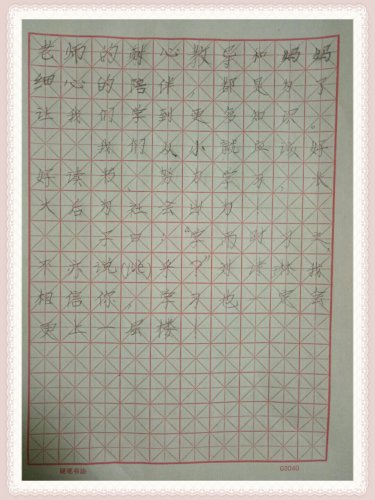 老师的耐心教导和妈妈
细心的陪伴，都是为了
让我们学到更多知识。
我们从小就应该好
好读书，努力学习，长
大后为社会出力！
子曰：“学而时习之，
不亦说(悦)乎？”林沫
相信你，学习也一定会
更上一层楼！
硬笔书法
G3040